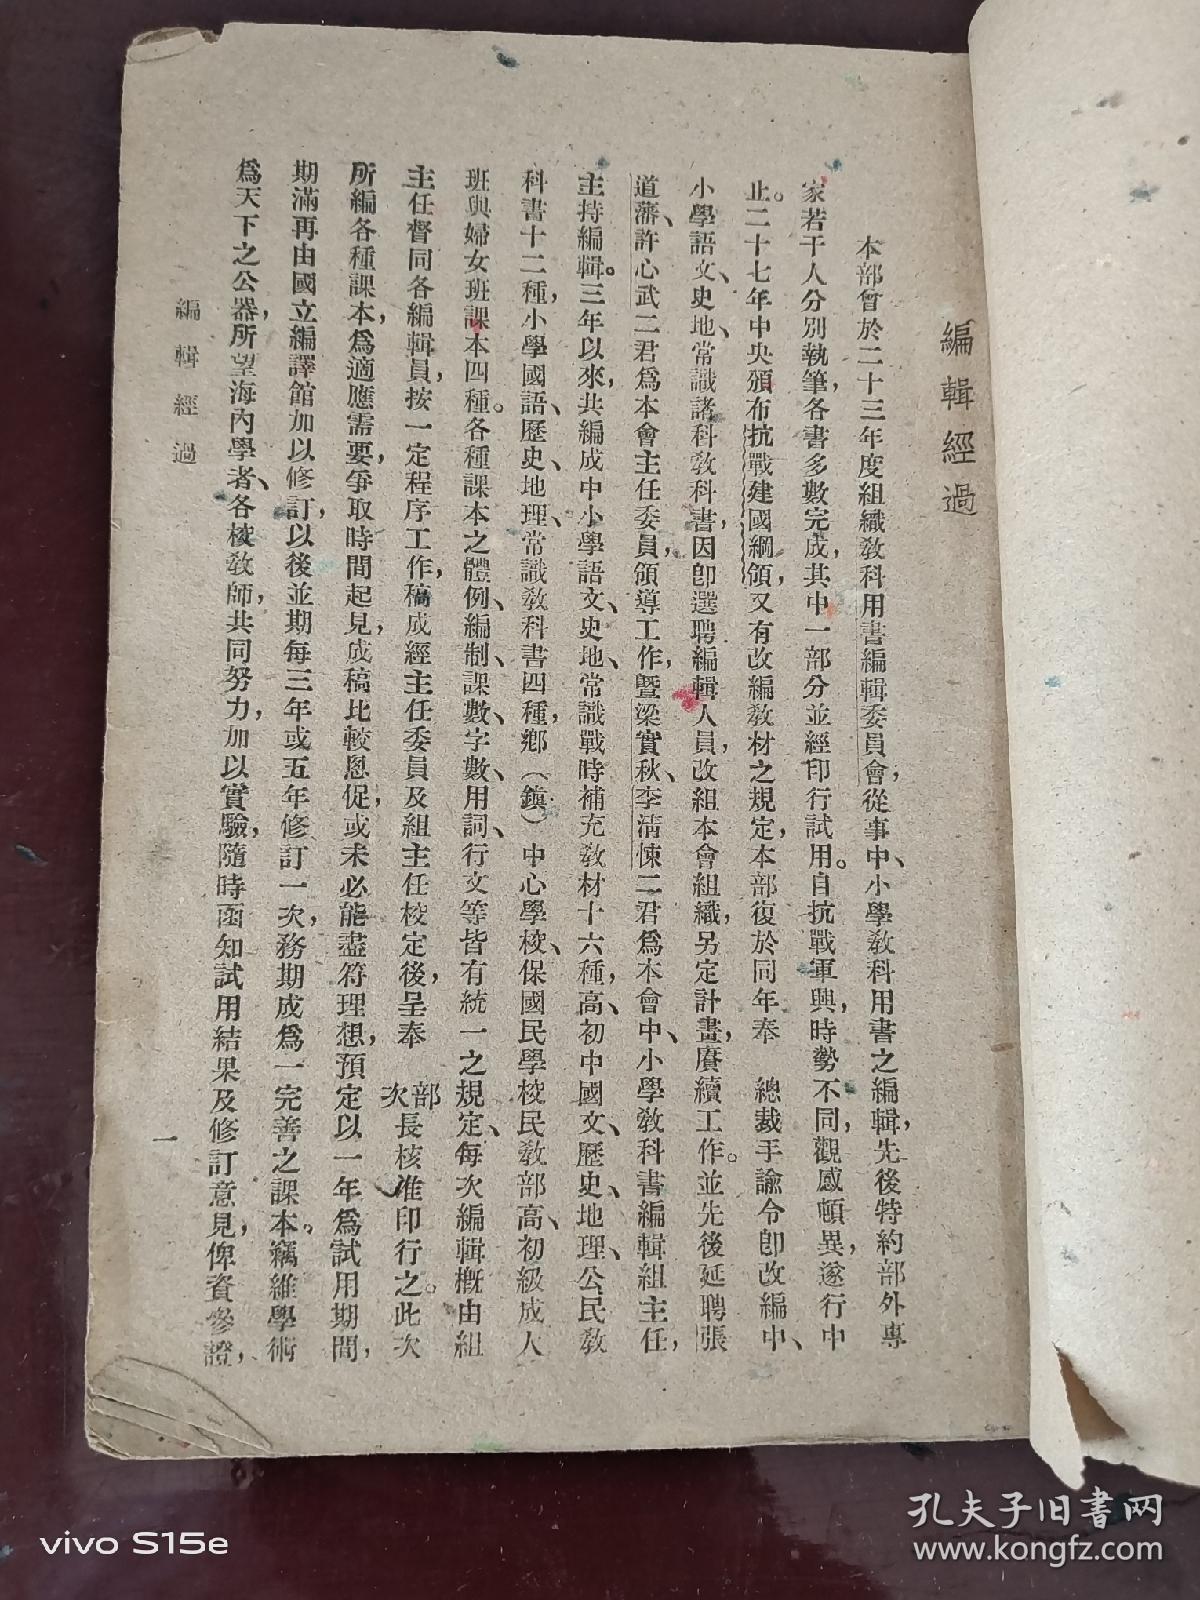 編輯經過
本部曾於二十三年度組織教科用書編輯委員會，從事中、小學教科用書之編輯，先後特約部外專
家若干人分別執筆，各書多數完成，其中一部分並經印行試用。自抗戰軍興，時勢不同，觀感頓異，遂行中
止。二十七年中央頒布抗戰建國綱領，又有改編教材之規定，本部復於同年奉　總裁手諭令卽改編中、
小學語文、史地、常識諸科教科書，因卽選聘編輯人員，改組本會組織，另定計畫，賡續工作。並先後延聘張
道藩、許心武二君爲本會主任委員，領導工作，暨梁實秋、李清悚二君爲本會中、小學教科書編輯組主任，
主持編輯。三年以來，共編成中小學語文、史地、常識戰時補充教材十六種，高、初中國文、歷史、地理、公民教
科書十二種，小學國語、歷史、地理、常識教科書四種，鄉（鎮）中心學校、保國民學校民教部高、初級成人
班與婦女班課本四種。各種課本之體例、編制、課數、字數、用詞、行文等皆有統一之規定、每次編輯概由組
主任督同各編輯員，按一定程序工作，稿成經主任委員及組主任校定後，呈奉　部次長核准印行之。此次
所編各種課本，爲適應需要，爭取時間起見，成稿比較悤促，或未必能盡符理想，預定以一年爲試用期間，
期滿再由國立編譯館加以修訂，以後並期每三年或五年修訂一次，務期成爲一完善之課本。竊維學術
爲天下之公器，所望海內學者、各校教師，共同努力，加以實驗，隨時函知試用結果及修訂意見，俾資參證，
編輯經過
一
vivo S15e
孔夫子旧书网
www.kongfz.com